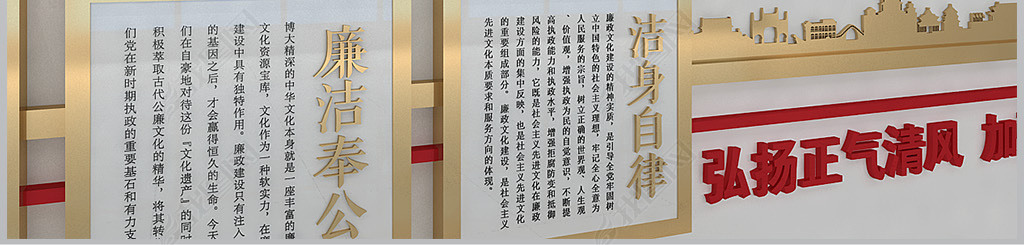 廉洁奉公
博大精深的中华文化本身就是一座丰富的廉
文化资源宝库，文化作为一种软实力，在廉
建设中具有独特作用。廉政建设只有注入
的基因之后，才会赢得恒久的生命。今天
们在自豪地对待这份『文化遗产』的同时
积极萃取古代公廉文化的精华，将其转
们党在新时期执政的重要基石和有力支
洁身自律
廉政文化建设的精神实质，是引导全党牢固树
立中国特色的社会主义理想，牢记全心全意为
人民服务的宗旨，树立正确的世界观、人生观
、价值观，增强执政为民的自觉意识，不断提
高执政能力和执政水平，增强拒腐防变和抵御
风险的能力，它既是社会主义先进文化在廉政
建设方面的集中反映，也是社会主义先进文化
的重要组成部分。廉政文化建设，是社会主义
先进文化本质要求和服务方向的体现。
弘扬正气清风 加